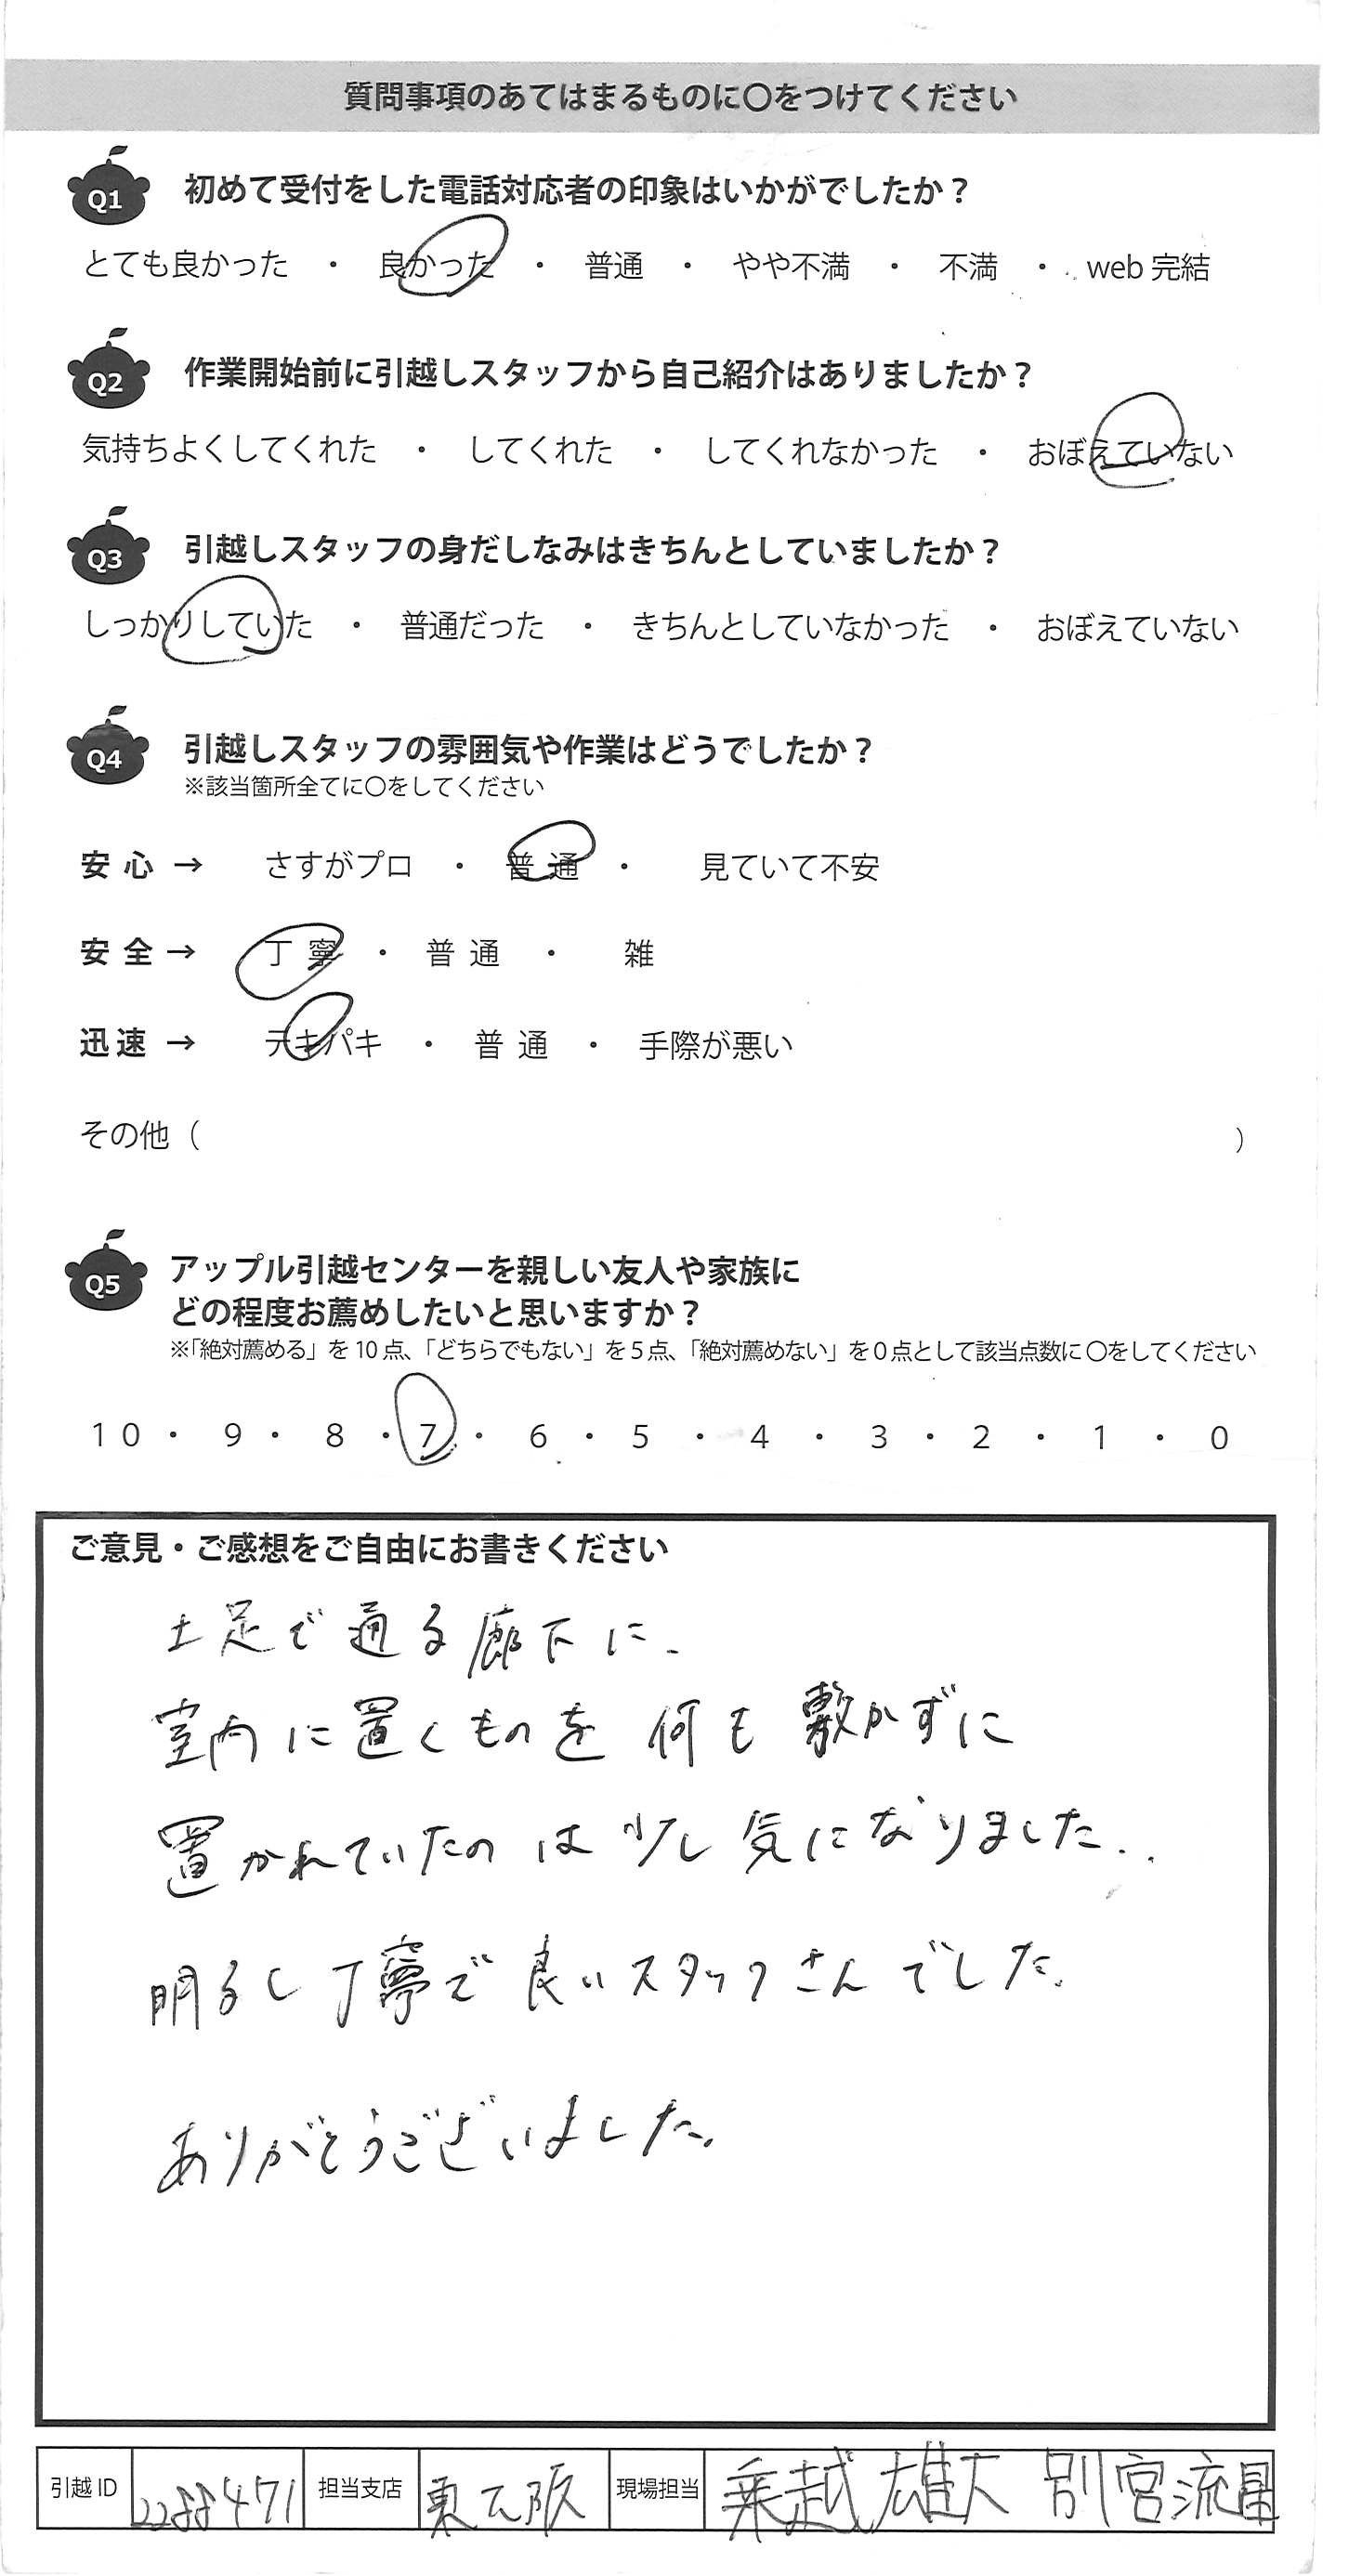 質問事項のあてはまるものに〇をつけてください
Q1 初めて受付をした電話対応者の印象はいかがでしたか？
とても良かった ・ 良かった ・ 普通 ・ やや不満 ・ 不満 ・ web 完結
Q2 作業開始前に引越しスタッフから自己紹介はありましたか？
気持ちよくしてくれた ・ してくれた ・ してくれなかった ・ おぼえていない
Q3 引越しスタッフの身だしなみはきちんとしていましたか？
しっかりしていた ・ 普通だった ・ きちんとしていなかった ・ おぼえていない
Q4 引越しスタッフの雰囲気や作業はどうでしたか？
※該当箇所全てに〇をしてください
安心 → さすがプロ ・ 普通 ・ 見ていて不安
安全 → 丁寧 ・ 普通 ・ 雑
迅速 → テキパキ ・ 普通 ・ 手際が悪い
その他（ ）
Q5 アップル引越センターを親しい友人や家族に
どの程度お薦めしたいと思いますか？
※「絶対薦める」を 10 点、「どちらでもない」を 5 点、「絶対薦めない」を 0 点として該当点数に 〇をしてください
10 ・ 9 ・ 8 ・ 7 ・ 6 ・ 5 ・ 4 ・ 3 ・ 2 ・ 1 ・ 0
ご意見・ご感想をご自由にお書きください
土足で通る廊下に、
室内に置くものを何も敷かずに
置かれていたのは少し気になりました..
明るく丁寧で良いスタッフさんでした。
ありがとうございました。
引越 ID 担当支店 東大阪 現場担当 乗越雄大 別宮流